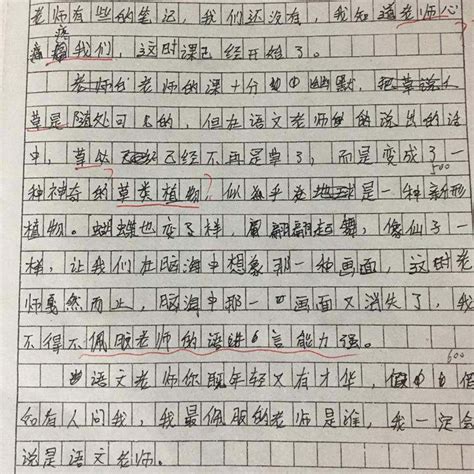 老师有些的笔记，我们还没有，我知道老师心
疼我们，这时课已经开始了。
老师的课十分的幽默，把草说人
草是随处可见的，但在语文老师的说出的话
中，草已经不再是草了，而是变成了一
500
种神奇的草类植物，似乎是一种新形
植物。蝴蝶也变了样，翩翩起舞，像仙子一
样，让我们在脑海中想象那一种画面，这时老
师戛然而止，脑海中那一画面又消失了，我
不得不佩服老师的语言能力强。
600
语文老师你既年轻又有才华，假
如有人问我，我最佩服的老师是谁，我一定会
说是语文老师。